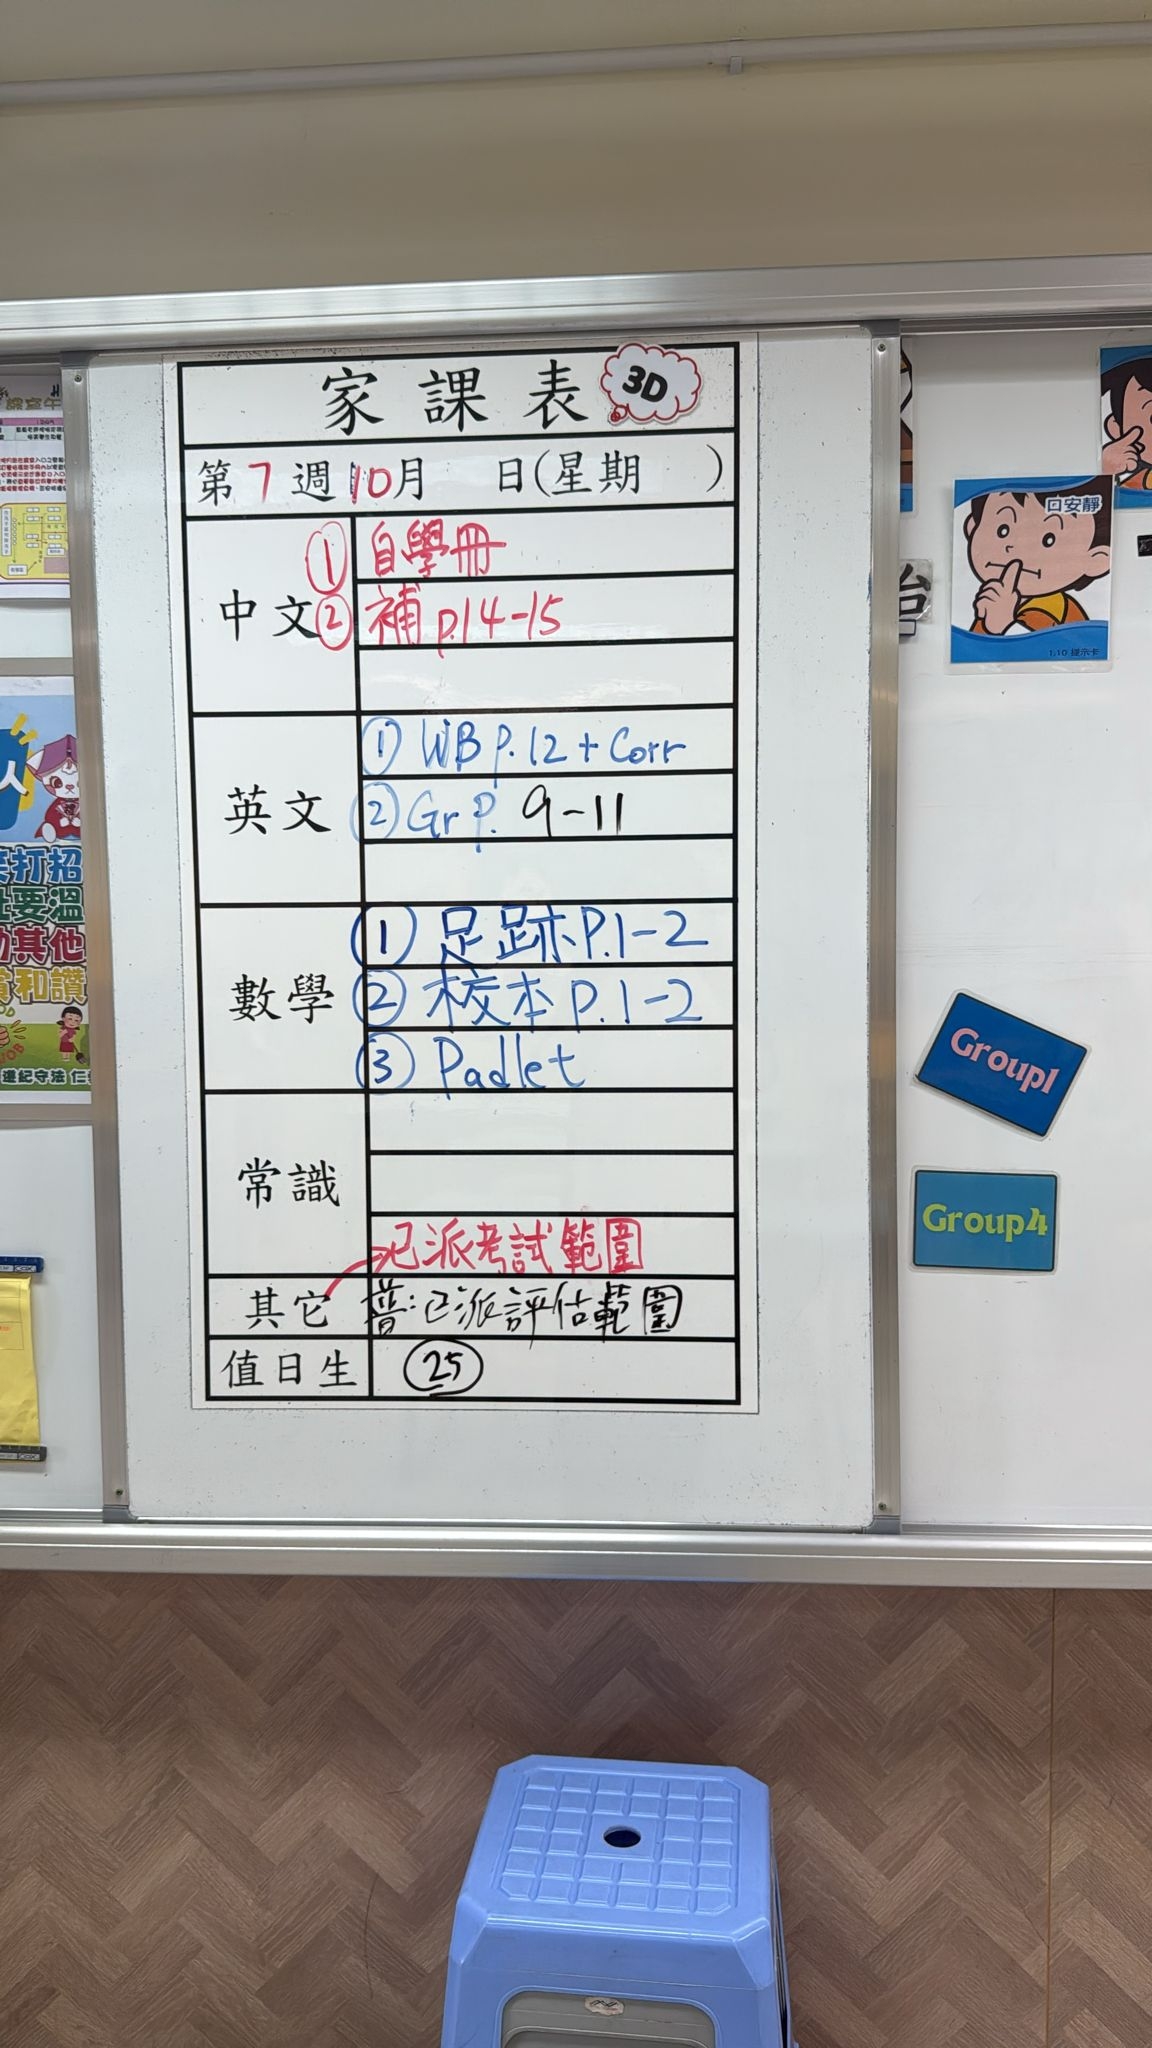 家課表 3D
第7週10月 日(星期 )
中文
① 自學冊
② 補 p.14-15
英文
① WB P.12 + Corr
② Gr P. 9-11
數學
① 足跡 P.1-2
② 校本 P.1-2
③ Padlet
常識
已派考試範圍
其它 普:已派評估範圍
值日生 25
口安靜
1.10 提示卡
Group1
Group4
打招
要溫
其他
和讚
遵紀守法 仁